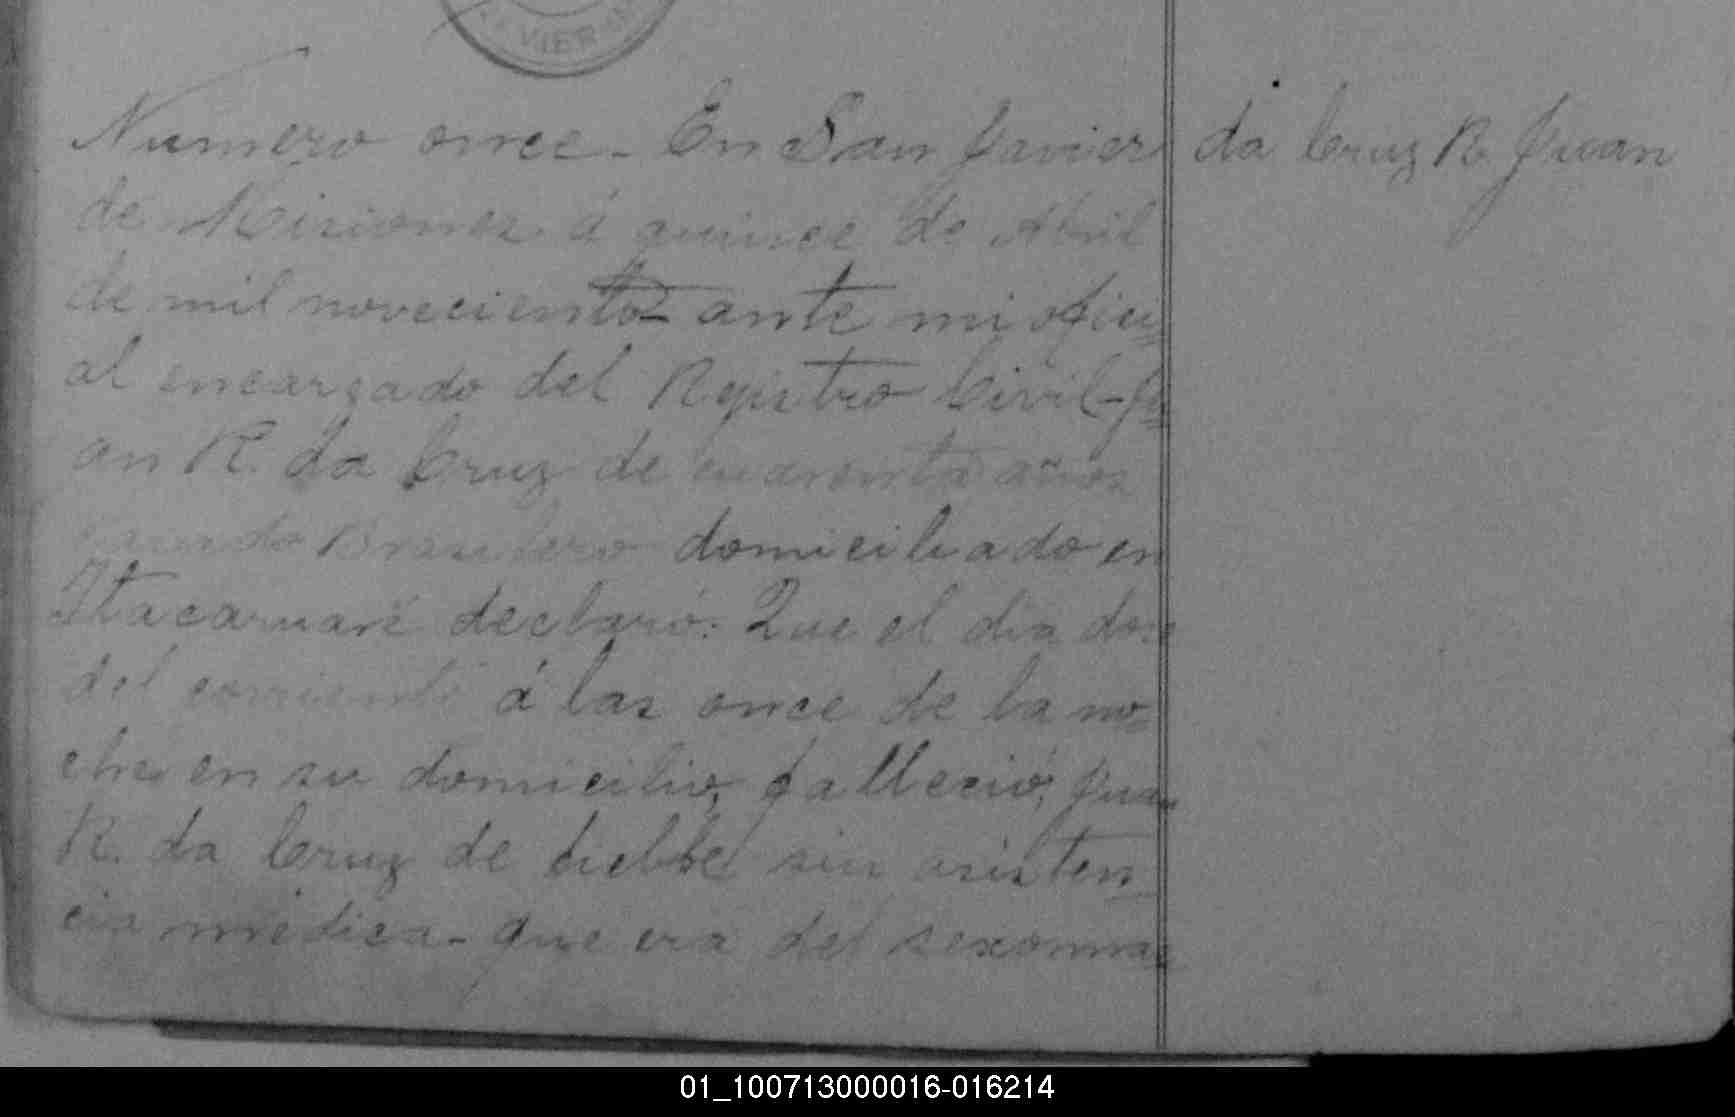 VIER
Numero once - En San Javier
da Cruz R. Juan
de Misiones á quince de Abril
de mil novecientos ante mi ofici
al encargado del Registro Civil - Ju
an R. da Cruz de cuarenta años
casado Brasilero domiciliado en
Itacaruaré declaró: Que el dia doce
del corriente á las once de la no
che en su domicilio, falleció, Juan
R. da Cruz de fiebbe sin asisten
cia médica - que era del sexo mas
01_100713000016-016214